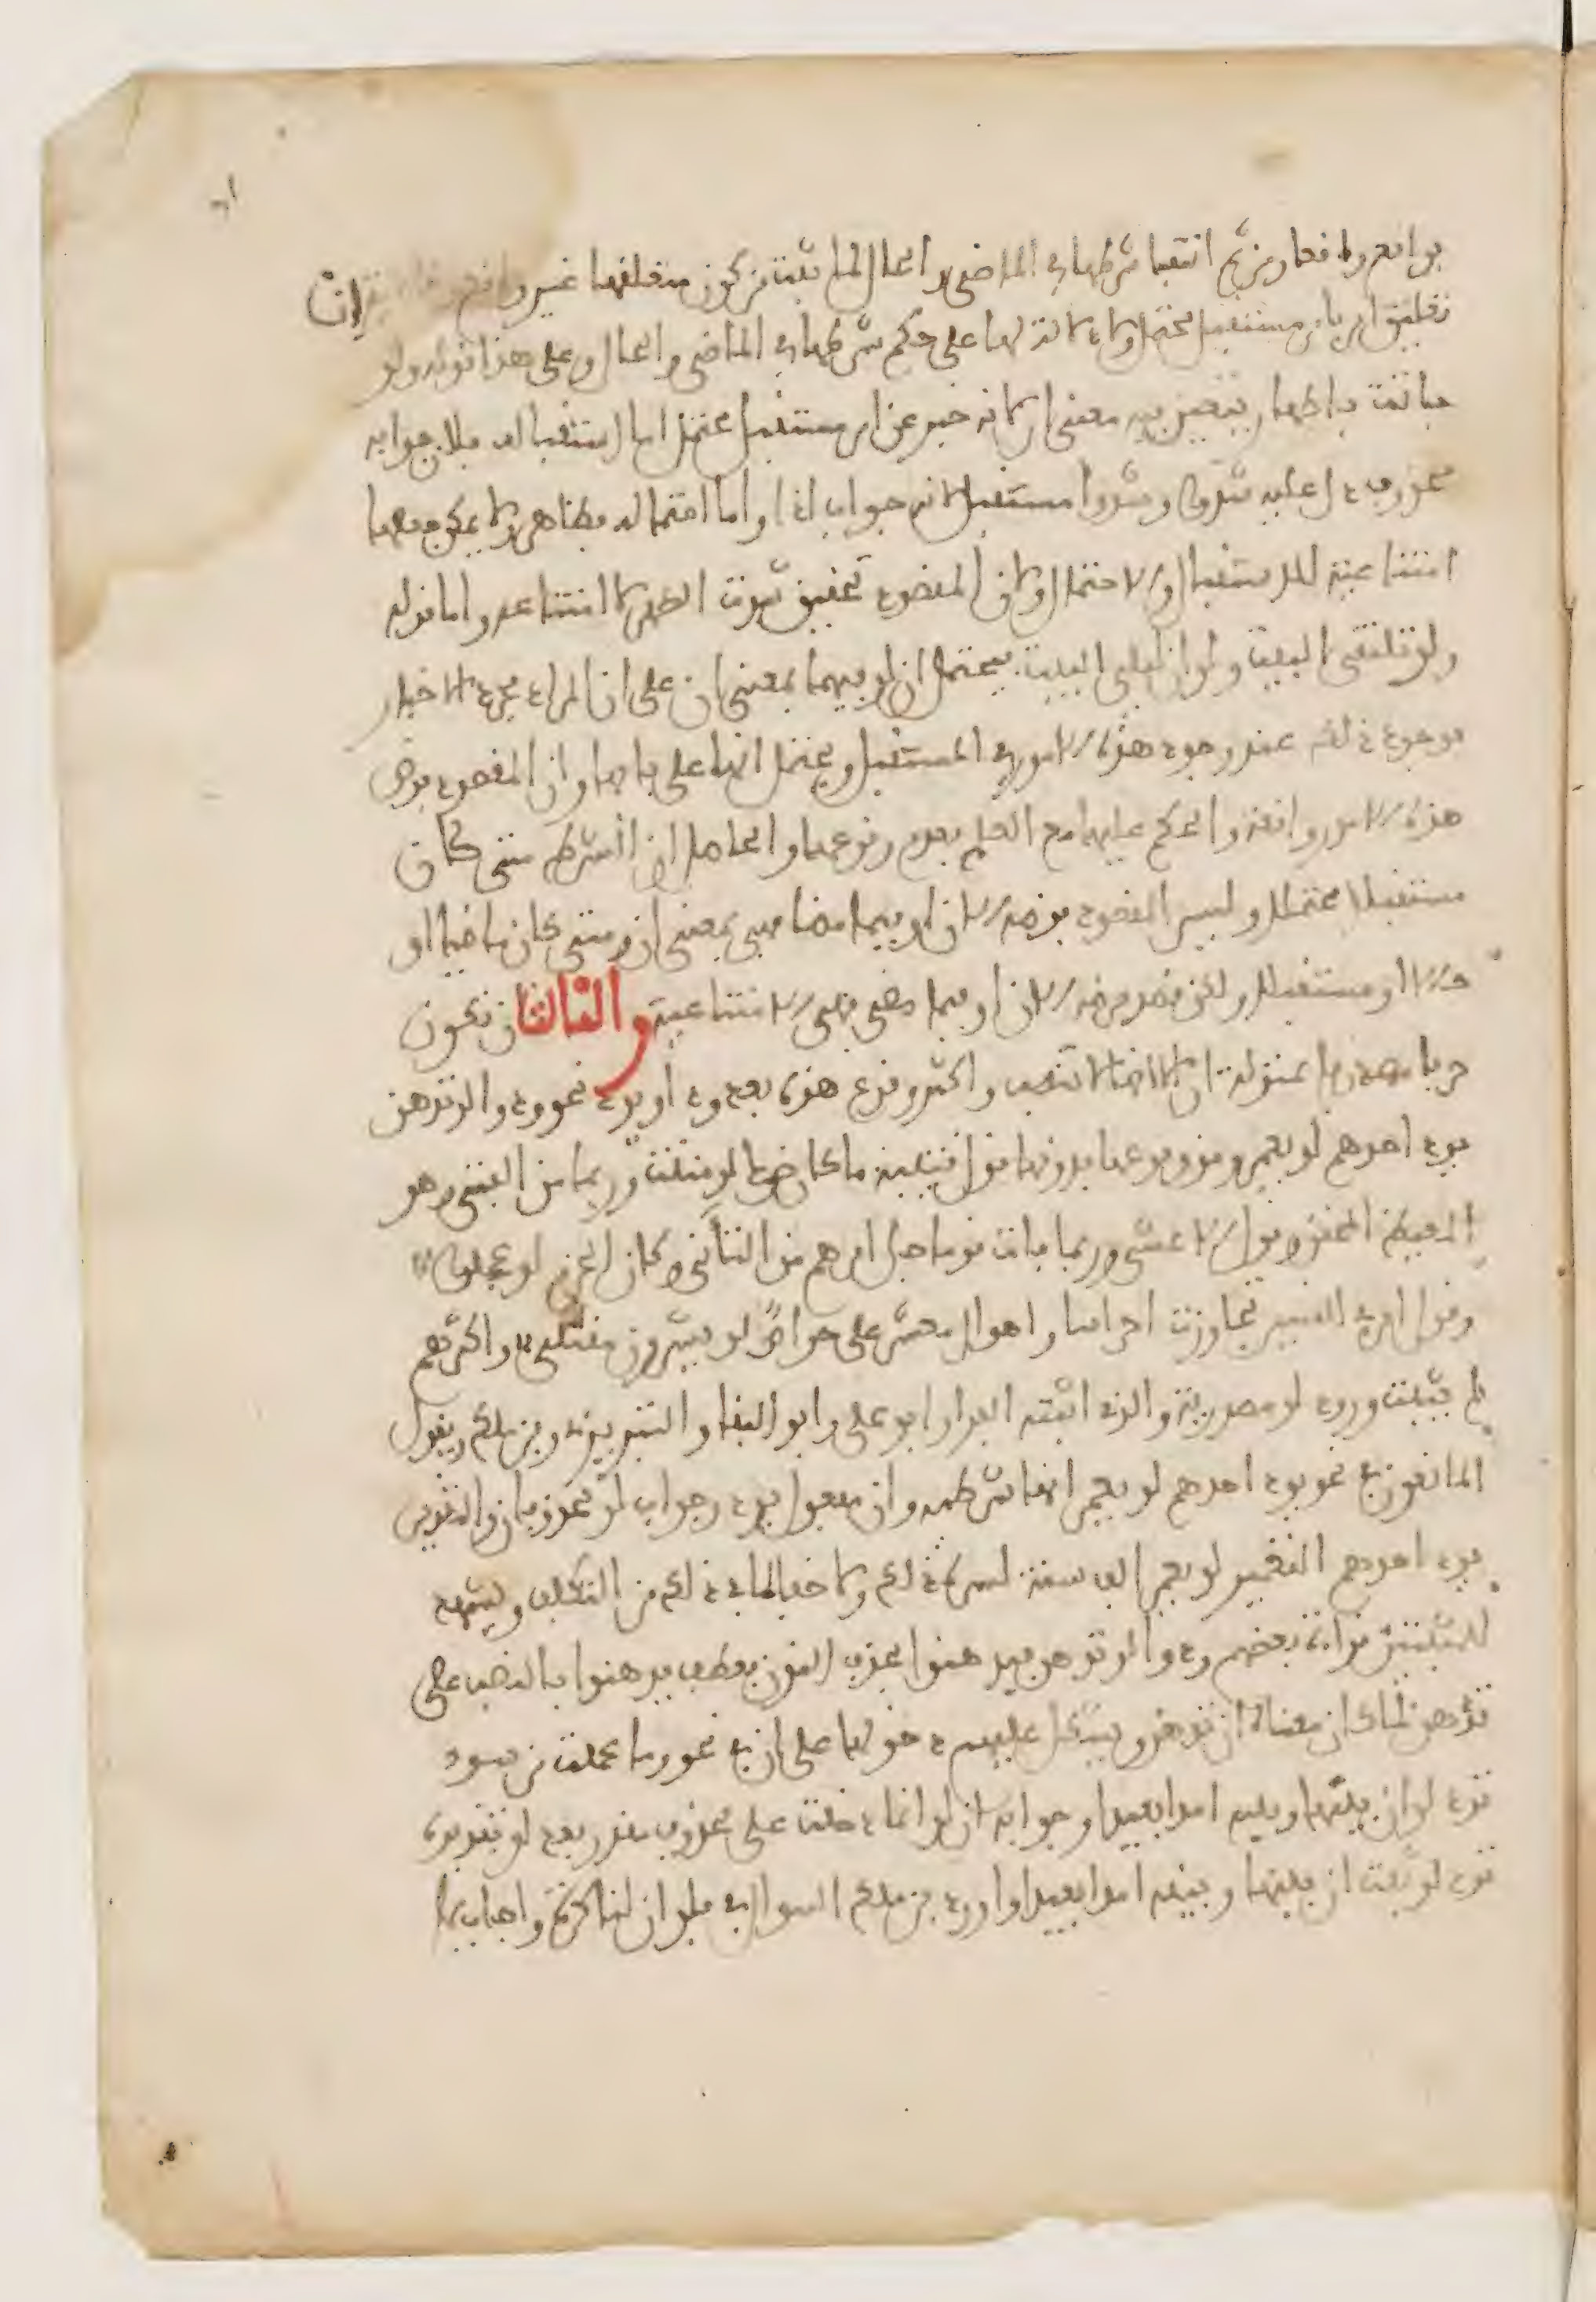 بواقع ولا فعا ومن ثم انتفا شرطها في الماضي والحال لما ثبت من كون متعلقها غير واقع وخاصة ان
تعليق امر بامر مستقبل محتمل ولا دلالة لها على حكم شرطها في الماضي والحال وعلى هذا قوله ولو
باتت باطهار يتعين فيه معنى ان لانه خبر عن امر مستقبل محتمل اما استقباله فلان جوابه
محذوف دل عليه شدوا وشدوا مستقبل لانه جواب اذا واما احتماله فظاهر ولا يمكن جعلها
امتناعية للاستقبال والاحتمال ولان المقصود تحقيق ثبوت الطهر لا امتناعه واما قوله
ولو تلتقي البيت ولو ان ليلى البيت فيحتمل ان لو فيهما بمعنى ان على ان المراد مجرد الاخبار
بوجود ذلك عند وجود هذه الامور في المستقبل ويحتمل انها على بابها وان المقصود فرض
هذه الامور واقعة والحكم عليها مع العلم بعدم وقوعها والحاصل ان الشرط متى كان
مستقبلا محتملا وليس المقصود فرضه الان او فيما مضا فهي بمعنى ان ومتى كان ماضيا او
حالا او مستقبلا ولكن قصد فرضه الان او فيما مضى فهي الامتناعية والثالث ان تكون
حرفا مصدريا بمنزلة ان الا انها لا تنصب واكثر وقوع هذه بعد ود او يود نحو ودوا لو تدهن
يود احدهم لو يعمر ومن وقوعها بدونها قول قتيلة ما كان ضرك لو مننت وربما من الفتى وهو
المغيظ المحنق وقول الاعشى وربما فات قوما جل امرهم من التأني وكان الحزم لو عجلوا
وقول امرئ القيس تجاوزت احراسا واهوال معشر علي حراصا لو يشرون مقتلي واكثرهم
لم يثبت ورود لو مصدرية والذي اثبته الفراء وابو علي وابو البقا والتبريزي وابن ملك ويقول
المانعون في نحو يود احدهم لو يعمر انها شرطية وان مفعول يود وجواب لو محذوفان والتقدير
يود احدهم التعمير لو يعمر الف سنة لسره ذلك ولا خفا لما في ذلك من التكلف ويشهد
للمثبتين قراءة بعضهم ودوا لو تدهن فيدهنوا بحذف النون فعطف يدهنوا بالنصب على
تدهن لما كان معناه ان تدهن ويشكل عليهم دخولها على ان في نحو وما عملت من سوء
تود لو ان بينها وبينه امدا بعيدا وجوابه ان لو انما دخلت على محذوف مقدر بعد لو تقديره
تود لو ثبت ان بينها وبينه امدا بعيدا واورد ابن ملك السوال في فلو ان لنا كرة واجاب